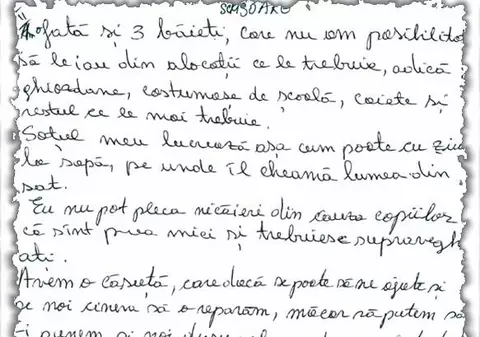 SCRISOARE
o fată și 3 băieti, care nu am posibilitat
să le iau din alocații ce le trebuie, adică
ghiozdane, costumase de școală, caiete și
restul ce le mai trebuie.
Soțul meu lucrează așa cum poate cu ziua
la sapă, pe unde îl cheamă lumea din
sat.
Eu nu pot pleca nicăieri din cauza copiilor
că sînt prea mici și trebuiesc supravegh
ați.
Avem o căsuță, care dacă se poate să ne ajute și
pe noi cineva să o reparăm, măcar să putem să
punem și noi